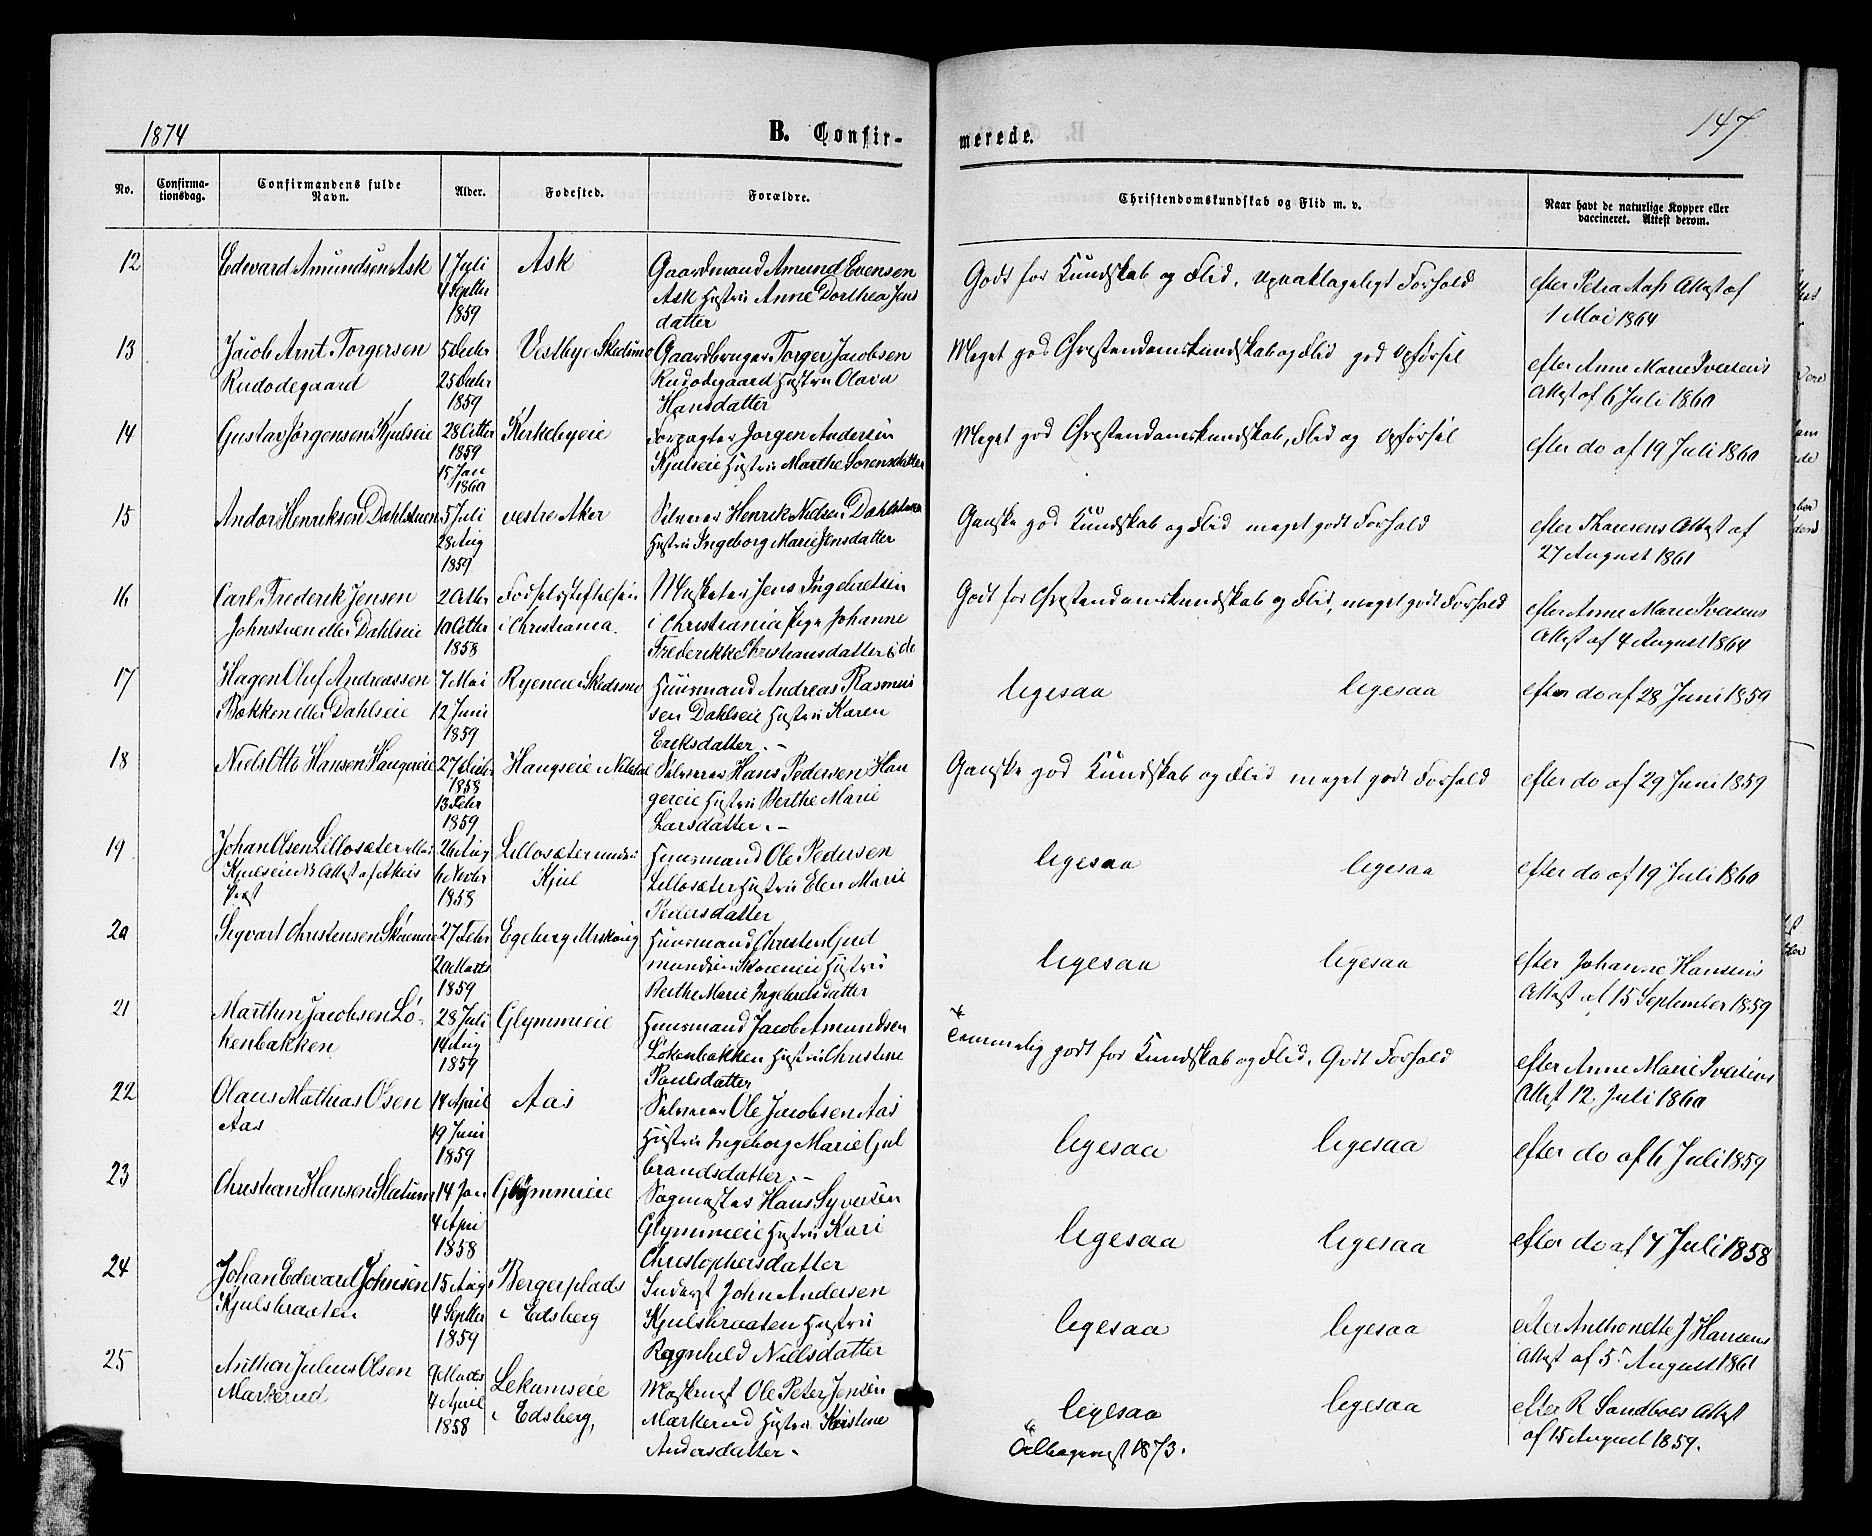 1874
B. Confir-
merede.
147
No.
Confirma-
tionsdag.
Confirmandens fulde
Navn.
Alder.
Fødested.
Forældre.
Christendomskundskab og Flid m. v.
Naar havt de naturlige Kopper eller
vaccineret. Attest derom.
12 Edevard Amundsen Ask 1 Juli Ask Gaardmand Amund Evensen
4 Septbr Ask Hustru Anne Dorthea Jens
1859 datter
Godt for Kundskab og Flid, upaaklageligt Forhold
efter Petra Aass Attest af
1 Mai 1864
13 Jacob Arnt Torgersen 5 Decbr Vestbye i Skedsmo Gaardbruger Torger Jacobsen
Rudodegaard 25 Decbr Rudodegaard Hustru Olava
1859 Hansdatter
Meget god Christendomskundskab og Flid god Opførsel
efter Anne Marie Iversens
Attest af 6 Juli 1860
14 Gustav Jørgensen Kjulseie 28 Octbr Kirkebyeie Forpagter Jørgen Andersen
1859 Kjulseie Hustru Marthe Sorensdatter
15 Jan
1860
Meget god Christendomskundskab, Flid og Opførsel
efter do af 19 Juli 1860
15 Andor Henriksen Dahlstuen 5 Juli vestre Aker Selveier Henrik Nielsen Dahlstuen
28 Aug Hustru Ingeborg Marie Jensdatter
1859
Ganske god Kundskab og Flid meget godt Forhold
efter Thausens Attest af
27 August 1861
16 Carl Frederik Jensen 2 Octbr Fødselsstiftelsen Jens Ingebretsen
Johnstuen eller Dahlseie 10 Octbr i Christiania. i Christiania Pige Johanne
1858 Frederikke Christiansdatter i do
Godt for Christendomskundskab og Flid, meget godt Forhold
efter Anne Marie Iversens
Attest af 4 August 1864
17 Hagen Oluf Andreassen 7 Mai Ryeneie i Skedsmo Huusmand Andreas Rasmus
Bekken eller Dahlseie 12 Juni sen Dahlseie Hustru Karen
1859 Ericksdatter. -
ligesaa ligesaa
efter do af 28 Juni 1859
18 Niels Otto Hansen Haugereie 27 Decbr Haugseie i Selveier Hans Pedersen Hau
1858 gereie Hustru Berthe Marie
13 Febr Larsdatter. -
1859
Ganske god Kundskab og Flid meget godt Forhold
efter do af 29 Juni 1859
19 Johan Olsen Lillosæter eller 26 Aug Lillosæter under Huusmand Ole Pedersen
Kjulseie NB Attest af Akers 6 Novbr Kjul Lillosæter Hustru Elen Marie
Præst 1858 Pedersdatter
ligesaa ligesaa
efter do af 19 Juli 1860
20 Sigvart Christensen Skoeneie 27 Febr Egeberg Huusmand Christen Gud
20 Marts mundsen Skoeneie Hustru
1859 Berthe Marie Ingebretsdatter
ligesaa ligesaa
efter Johanne Hansens
Attest af 15 September 1859
21 Marthin Jacobsen Lø- 28 Juli Glymmeie Huusmand Jacob Amundsen
kenbakken 14 Aug Løkenbakken Hustru Christine
1859 Paulsdatter
* Temmelig godt for Kundskab og Flid. Godt Forhold
efter Anne Marie Iversens
Attest 12 Juli 1860
22 Olaus Mathias Olsen 14 April Aas Selveier Ole Jacobsen Aas
Aas 19 Juni Hustru Ingeborg Marie Gul
1859 brandsdatter. -
ligesaa ligesaa
efter do af 6 Juli 1859
23 Christian Hansen Slatum 14 Jan Glymmeie Sagmester Hans Syversen
4 Apri Glymmeie Hustru Kari
1858 Christophersdatter
ligesaa ligesaa
efter do af 7 Juli 1858
24 Johan Edevard Johnsen 15 Aug Bergerplads Inderst John Andersen
Kjulsbraaten 4 Septbr i Edsberg Kjulsbraaten Hustru
1859 Ragnhild Nielsdatter
ligesaa ligesaa
efter Anthonette J Hansens
Attest af 5 August 1861
25 Anthon Julius Olsen 9 Marts Lekamseie Ole Peter Jensen
Markerud 4 April i Edsberg, Markerud Hustru Kristine
1858 Andersdatter -
ligesaa ligesaa
efter R Sandboes Attest
af 15 August 1859.
* Tilbageviist 1873.